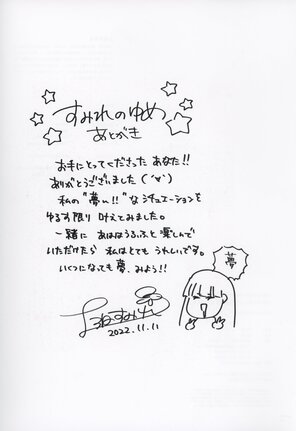 すみれのゆめ
あとがき
お手にとってくださった あなた!!
ありがとうございました (´∀`)
私の "夢い!!" な シチュエーションを
ゆるす限り 叶えてみました。
一緒に あはは うふふと 楽しんで
いただけたら 私はとても うれしいです。
いくつになっても 夢、みよう!!
夢
2022.11.11